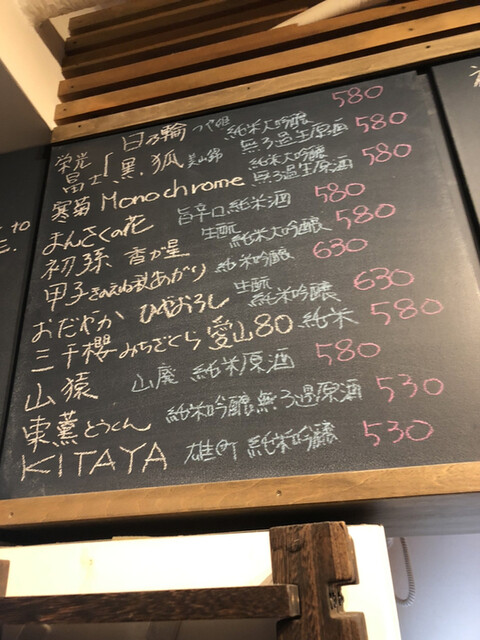 栄光冨士 日の輪 つや姫 純米大吟醸 580
黒狐 美山錦 無ろ過生原酒 580
寒菊 Monochrome 純米大吟醸 無ろ過生原酒 580
まんさくの花 旨辛口純米酒 580
初孫 香が星 生酛 純米大吟醸 580
甲子 きのえね 秋あがり 純米吟醸 630
おだやか ひやおろし 生酛 純米吟醸 630
三千櫻 みちざくら 愛山80 純米 580
山猿 山廃 純米原酒 580
東薫 とうくん 純米吟醸無ろ過原酒 530
KITAYA 雄町 純米吟醸 530
to
E.